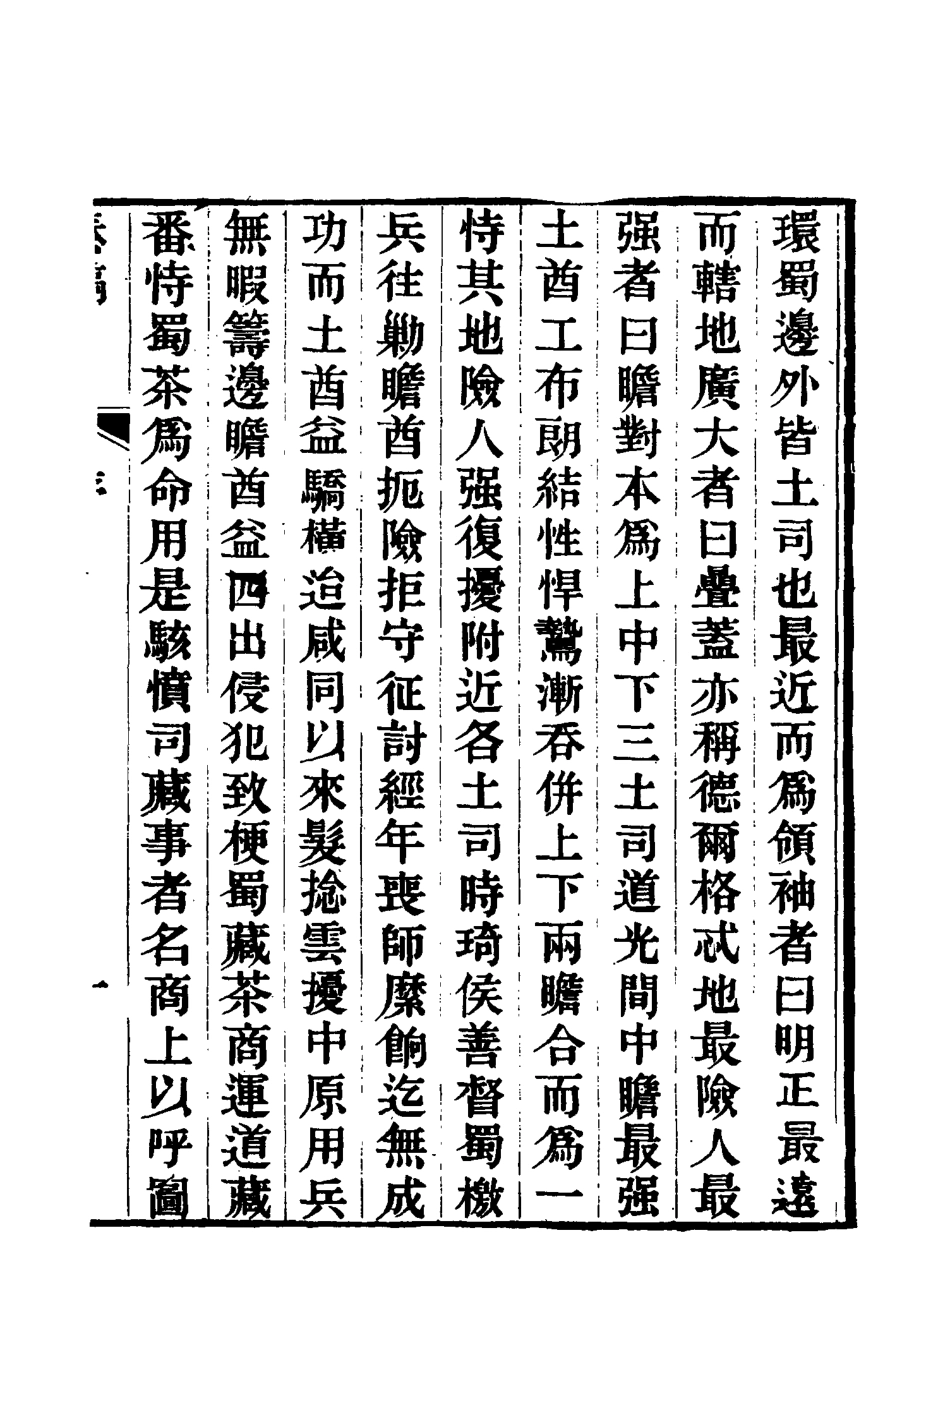 環蜀邊外皆土司也最近而爲領袖者曰明正最遠
而轄地廣大者曰疊蓋亦稱德爾格忒地最險人最
强者曰瞻對本爲上中下三土司道光間中瞻最强
土酋工布朗結性悍鷙漸吞併上下兩瞻合而爲一
恃其地險人强復擾附近各土司時琦侯善督蜀檄
兵往勦瞻酋扼險拒守征討經年喪師縻餉迄無成
功而土酋益驕橫迨咸同以來髮捻雲擾中原用兵
無暇籌邊瞻酋益四出侵犯致梗蜀藏茶商運道藏
番恃蜀茶爲命用是駭憤司藏事者名商上以呼圖